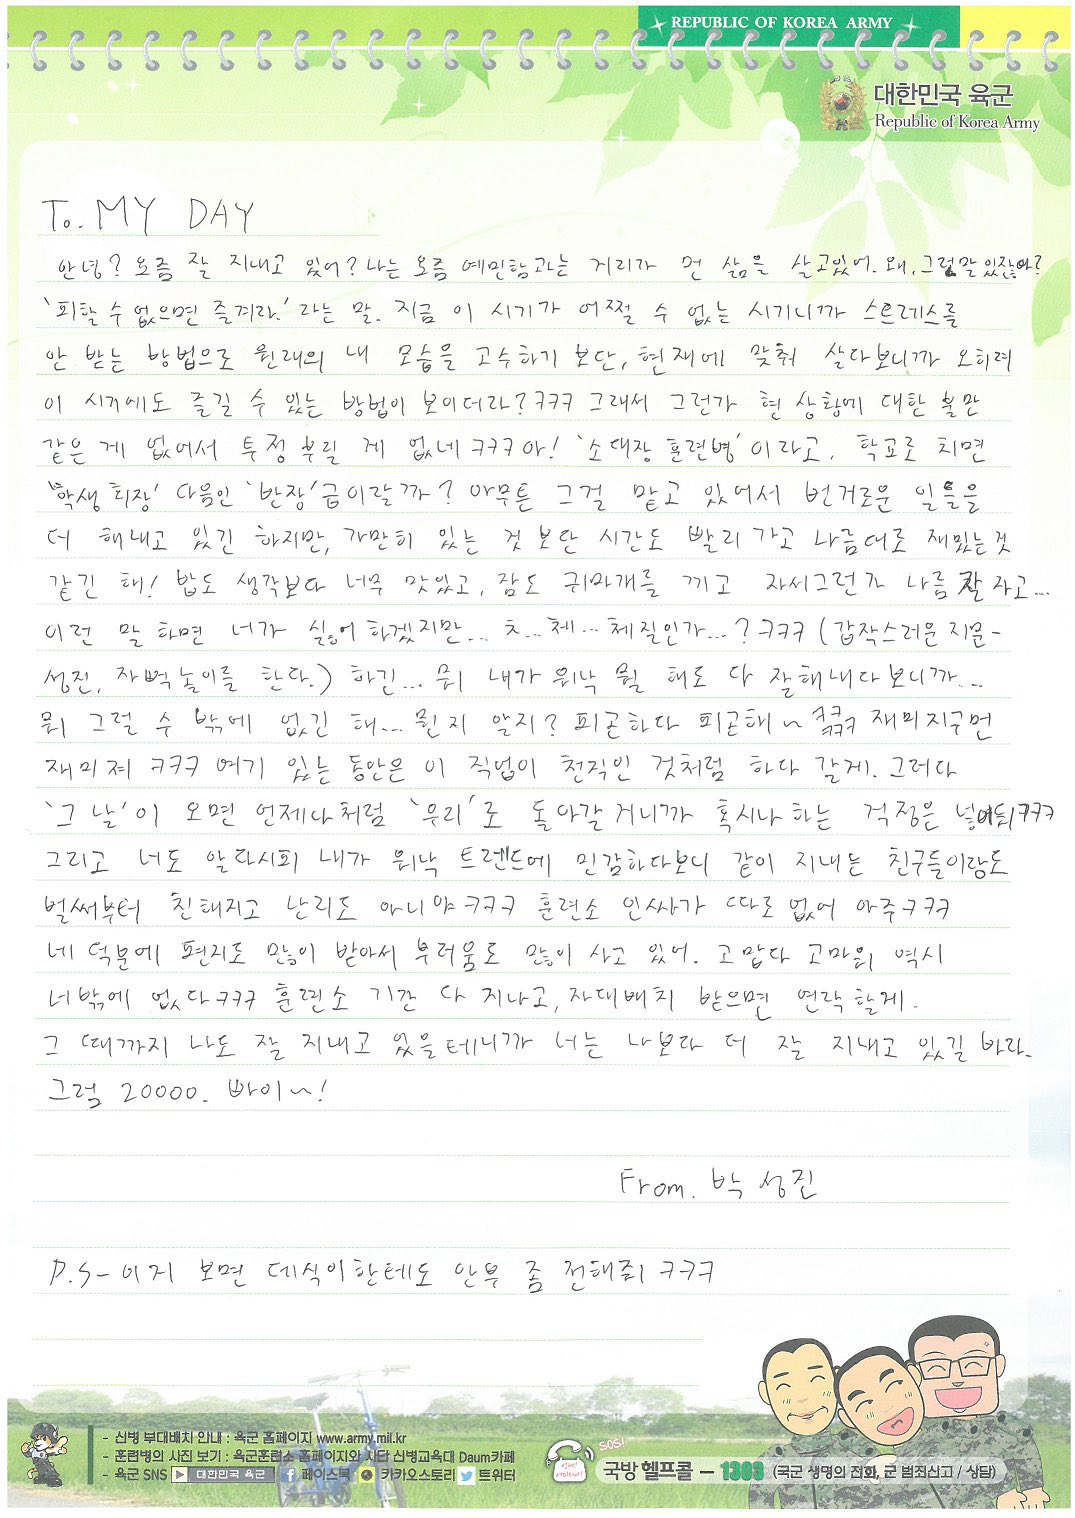 REPUBLIC OF KOREA ARMY
대한민국 육군
Republic of Korea Army
To. MY DAY
안녕? 요즘 잘 지내고 있어? 나는 요즘 예민함과는 거리가 먼 삶을 살고있어. 왜, 그런말 있잖아?
'피할 수 없으면 즐겨라.' 라는 말. 지금 이 시기가 어쩔 수 없는 시기니까 스트레스를
안 받는 방법으로 원래의 내 모습을 고수하기 보단, 현재에 맞춰 살다보니까 오히려
이 시기에도 즐길 수 있는 방법이 보이더라? ㅋㅋㅋ 그래서 그런가 현 상황에 대한 불만
같은 게 없어서 투정 부릴 게 없네 ㅋㅋㅋ 아! '소대장 훈련병' 이라고, 학교로 치면
'학생회장' 다음인 '반장' 급이랄까? 아무튼 그걸 맡고 있어서 번거로운 일들을
더 해내고 있긴 하지만, 가만히 있는 것 보단 시간도 빨리 가고 나름대로 재밌는것
같긴 해! 밥도 생각보다 너무 맛있고, 잠도 귀마개를 끼고 자서그런가 나름 잘 자고...
이런 말 하면 네가 싫어하겠지만... ㅊ...체... 체질인가...? ㅋㅋㅋ (갑작스러운 지문-
성진, 자벽놀이를 한다.) 하긴... 뭐 내가 워낙 뭘 해도 다 잘해내다보니까...
뭐 그럴 수 밖에 없긴 해... 뭔지 알지? 피곤하다 피곤해~ ㅋㅋㅋㅋㅋㅋ 재미지구먼
재미져 ㅋㅋㅋ 여기 있는 동안은 이 직업이 천직인 것처럼 하다 갈게. 그러다
'그 날' 이 오면 언제나처럼 '우리'로 돌아갈 거니까 혹시나 하는 걱정은 넣어둬 ㅋㅋㅋ
그리고 너도 알다시피 내가 워낙 트렌드에 민감하다보니 같이 지내는 친구들이랑도
벌써부터 친해지고 난리도 아니야 ㅋㅋㅋ 훈련소 인싸가 따로 없어 아주 ㅋㅋㅋ
네 덕분에 편지도 많이 받아서 부러움도 많이 사고 있어. 고맙다 고마워 역시
너밖에 없다 ㅋㅋㅋ 훈련소 기간 다 지나고, 자대배치 받으면 연락할게.
그 때까지 나도 잘 지내고 있을테니까 너는 나보다 더 잘 지내고 있길 바라.
그럼 20000. 빠이~!
From. 박성진
P.S - 이거 보면 데식이한테도 안부 좀 전해줘 ㅋㅋㅋ
- 신병 부대배치 안내 : 육군 홈페이지 www.army.mil.kr
- 훈련병의 사진 보기 : 육군훈련소 홈페이지와 사단 신병교육대 Daum카페
- 육군 SNS 대한민국 육군 페이스북 카카오스토리 트위터
SOS!
국방헬프콜 - 1303 (국군 생명의 전화, 군 범죄신고 / 상담)